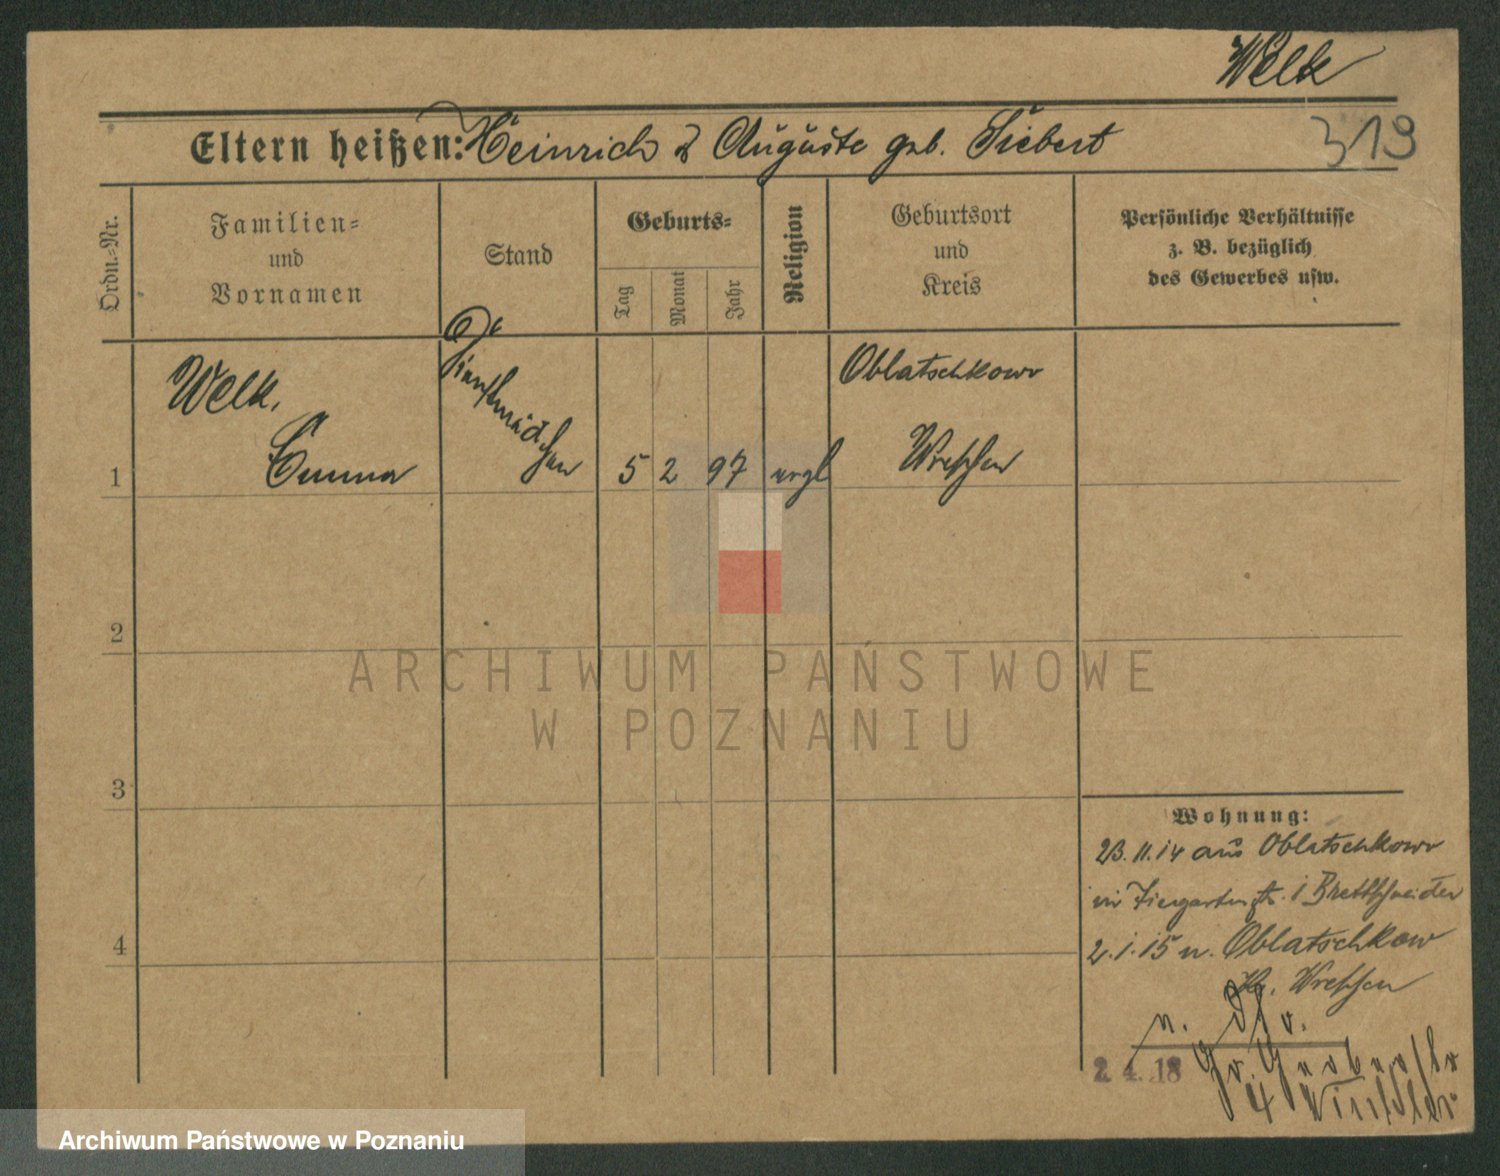 Welk
Eltern heißen: Heinrich & Auguste geb. Siebert
319
Ordn.-Nr.
Familien-
und
Vornamen
Stand
Geburts-
Tag
Monat
Jahr
Religion
Geburtsort
und
Kreis
Persönliche Verhältnisse
z. B. bezüglich
des Gewerbes usw.
1
Welk,
Emma
Dienstmädchen
5 2 97 evgl
Oblatschkowo
Wreschen
2
ARCHIWUM PAŃSTWOWE
W POZNANIU
3
Wohnung:
23.11.14 aus Oblatschkowo
in Tiergartenstr. 1 Brettschneider
4
2.1.15 n. Oblatschkowo
Kr. Wreschen
n.
2. 4. 18
Gr. Gerberstr
4
Archiwum Państwowe w Poznaniu